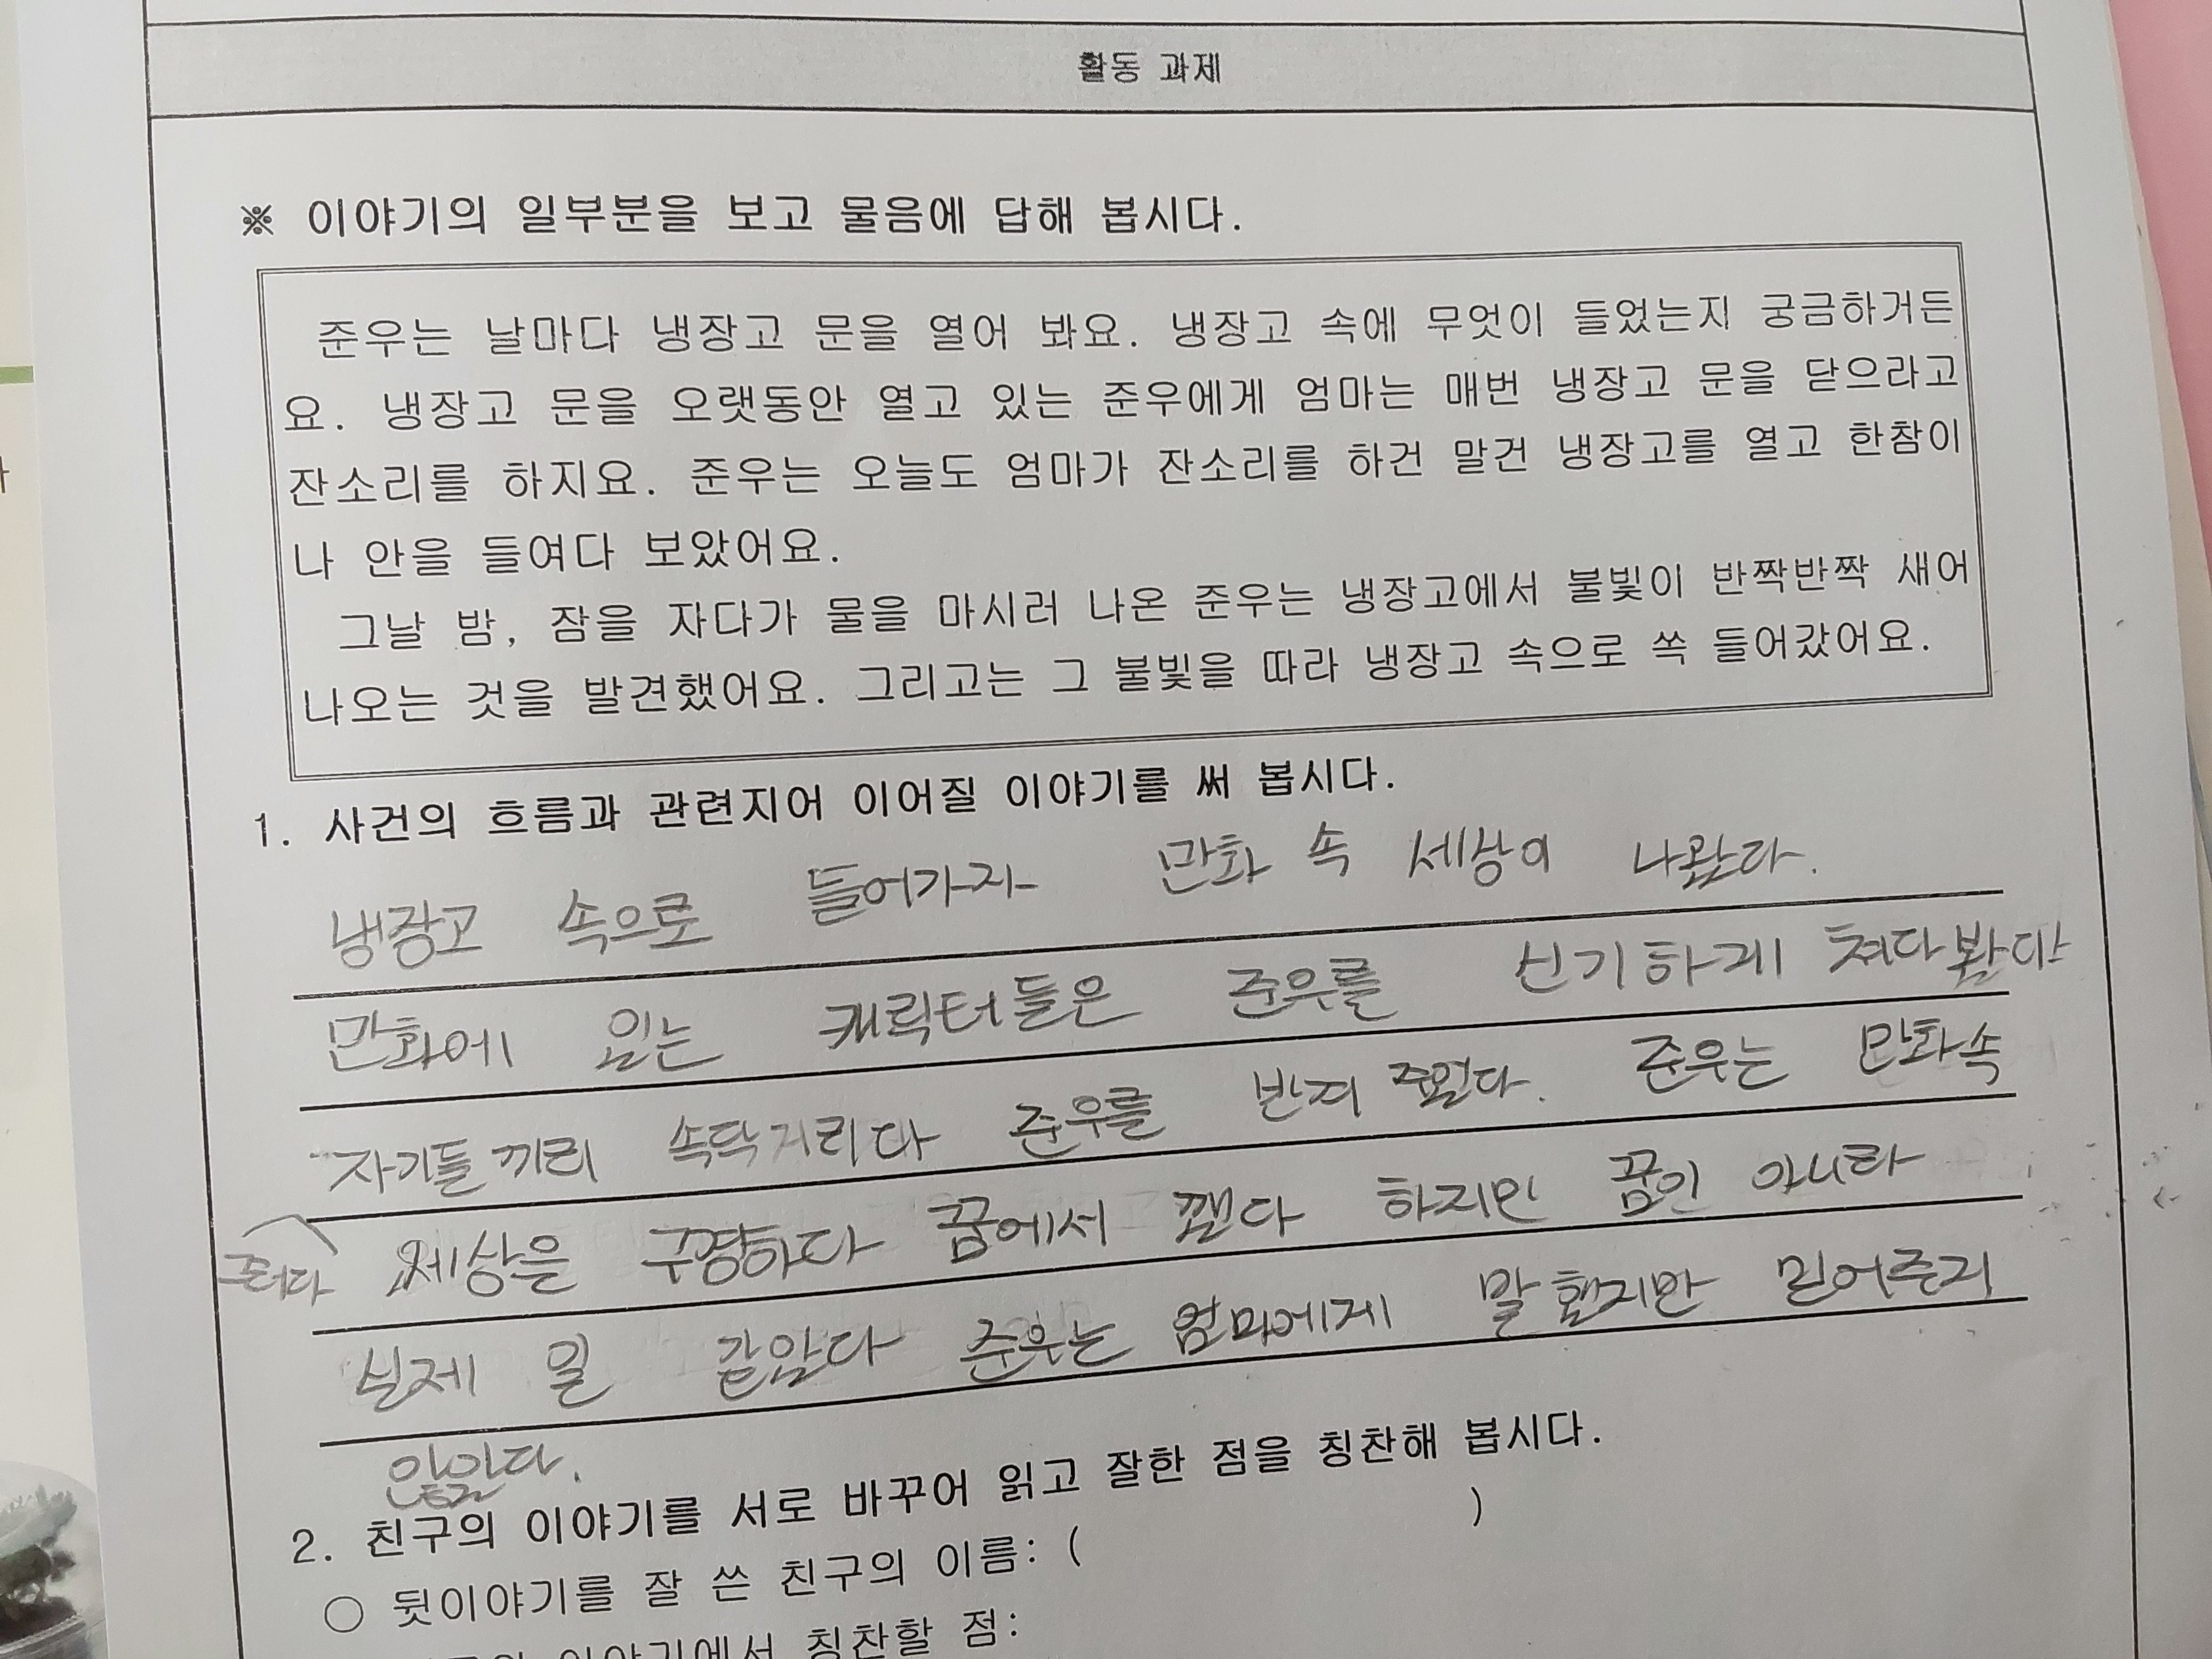 활동 과제
※ 이야기의 일부분을 보고 물음에 답해 봅시다.
준우는 날마다 냉장고 문을 열어 봐요. 냉장고 속에 무엇이 들었는지 궁금하거든
요. 냉장고 문을 오랫동안 열고 있는 준우에게 엄마는 매번 냉장고 문을 닫으라고
잔소리를 하지요. 준우는 오늘도 엄마가 잔소리를 하건 말건 냉장고를 열고 한참이
나 안을 들여다 보았어요.
그날 밤, 잠을 자다가 물을 마시러 나온 준우는 냉장고에서 불빛이 반짝반짝 새어
나오는 것을 발견했어요. 그리고는 그 불빛을 따라 냉장고 속으로 쏙 들어갔어요.
1. 사건의 흐름과 관련지어 이어질 이야기를 써 봅시다.
냉장고 속으로 들어가자 만화 속 세상이 나왔다.
만화에 있는 캐릭터들은 준우를 신기하게 쳐다봤다
자기들끼리 속닥거리다 준우를 반겨 주었다. 준우는 만화속
세상을 구경하다 꿈에서 깼다 하지만 꿈이 아니라
실제 일 같았다 준우는 엄마에게 말했지만 믿어주지
않았다.
2. 친구의 이야기를 서로 바꾸어 읽고 잘한 점을 칭찬해 봅시다.
○ 뒷이야기를 잘 쓴 친구의 이름: ( )
이야기에서 칭찬할 점: